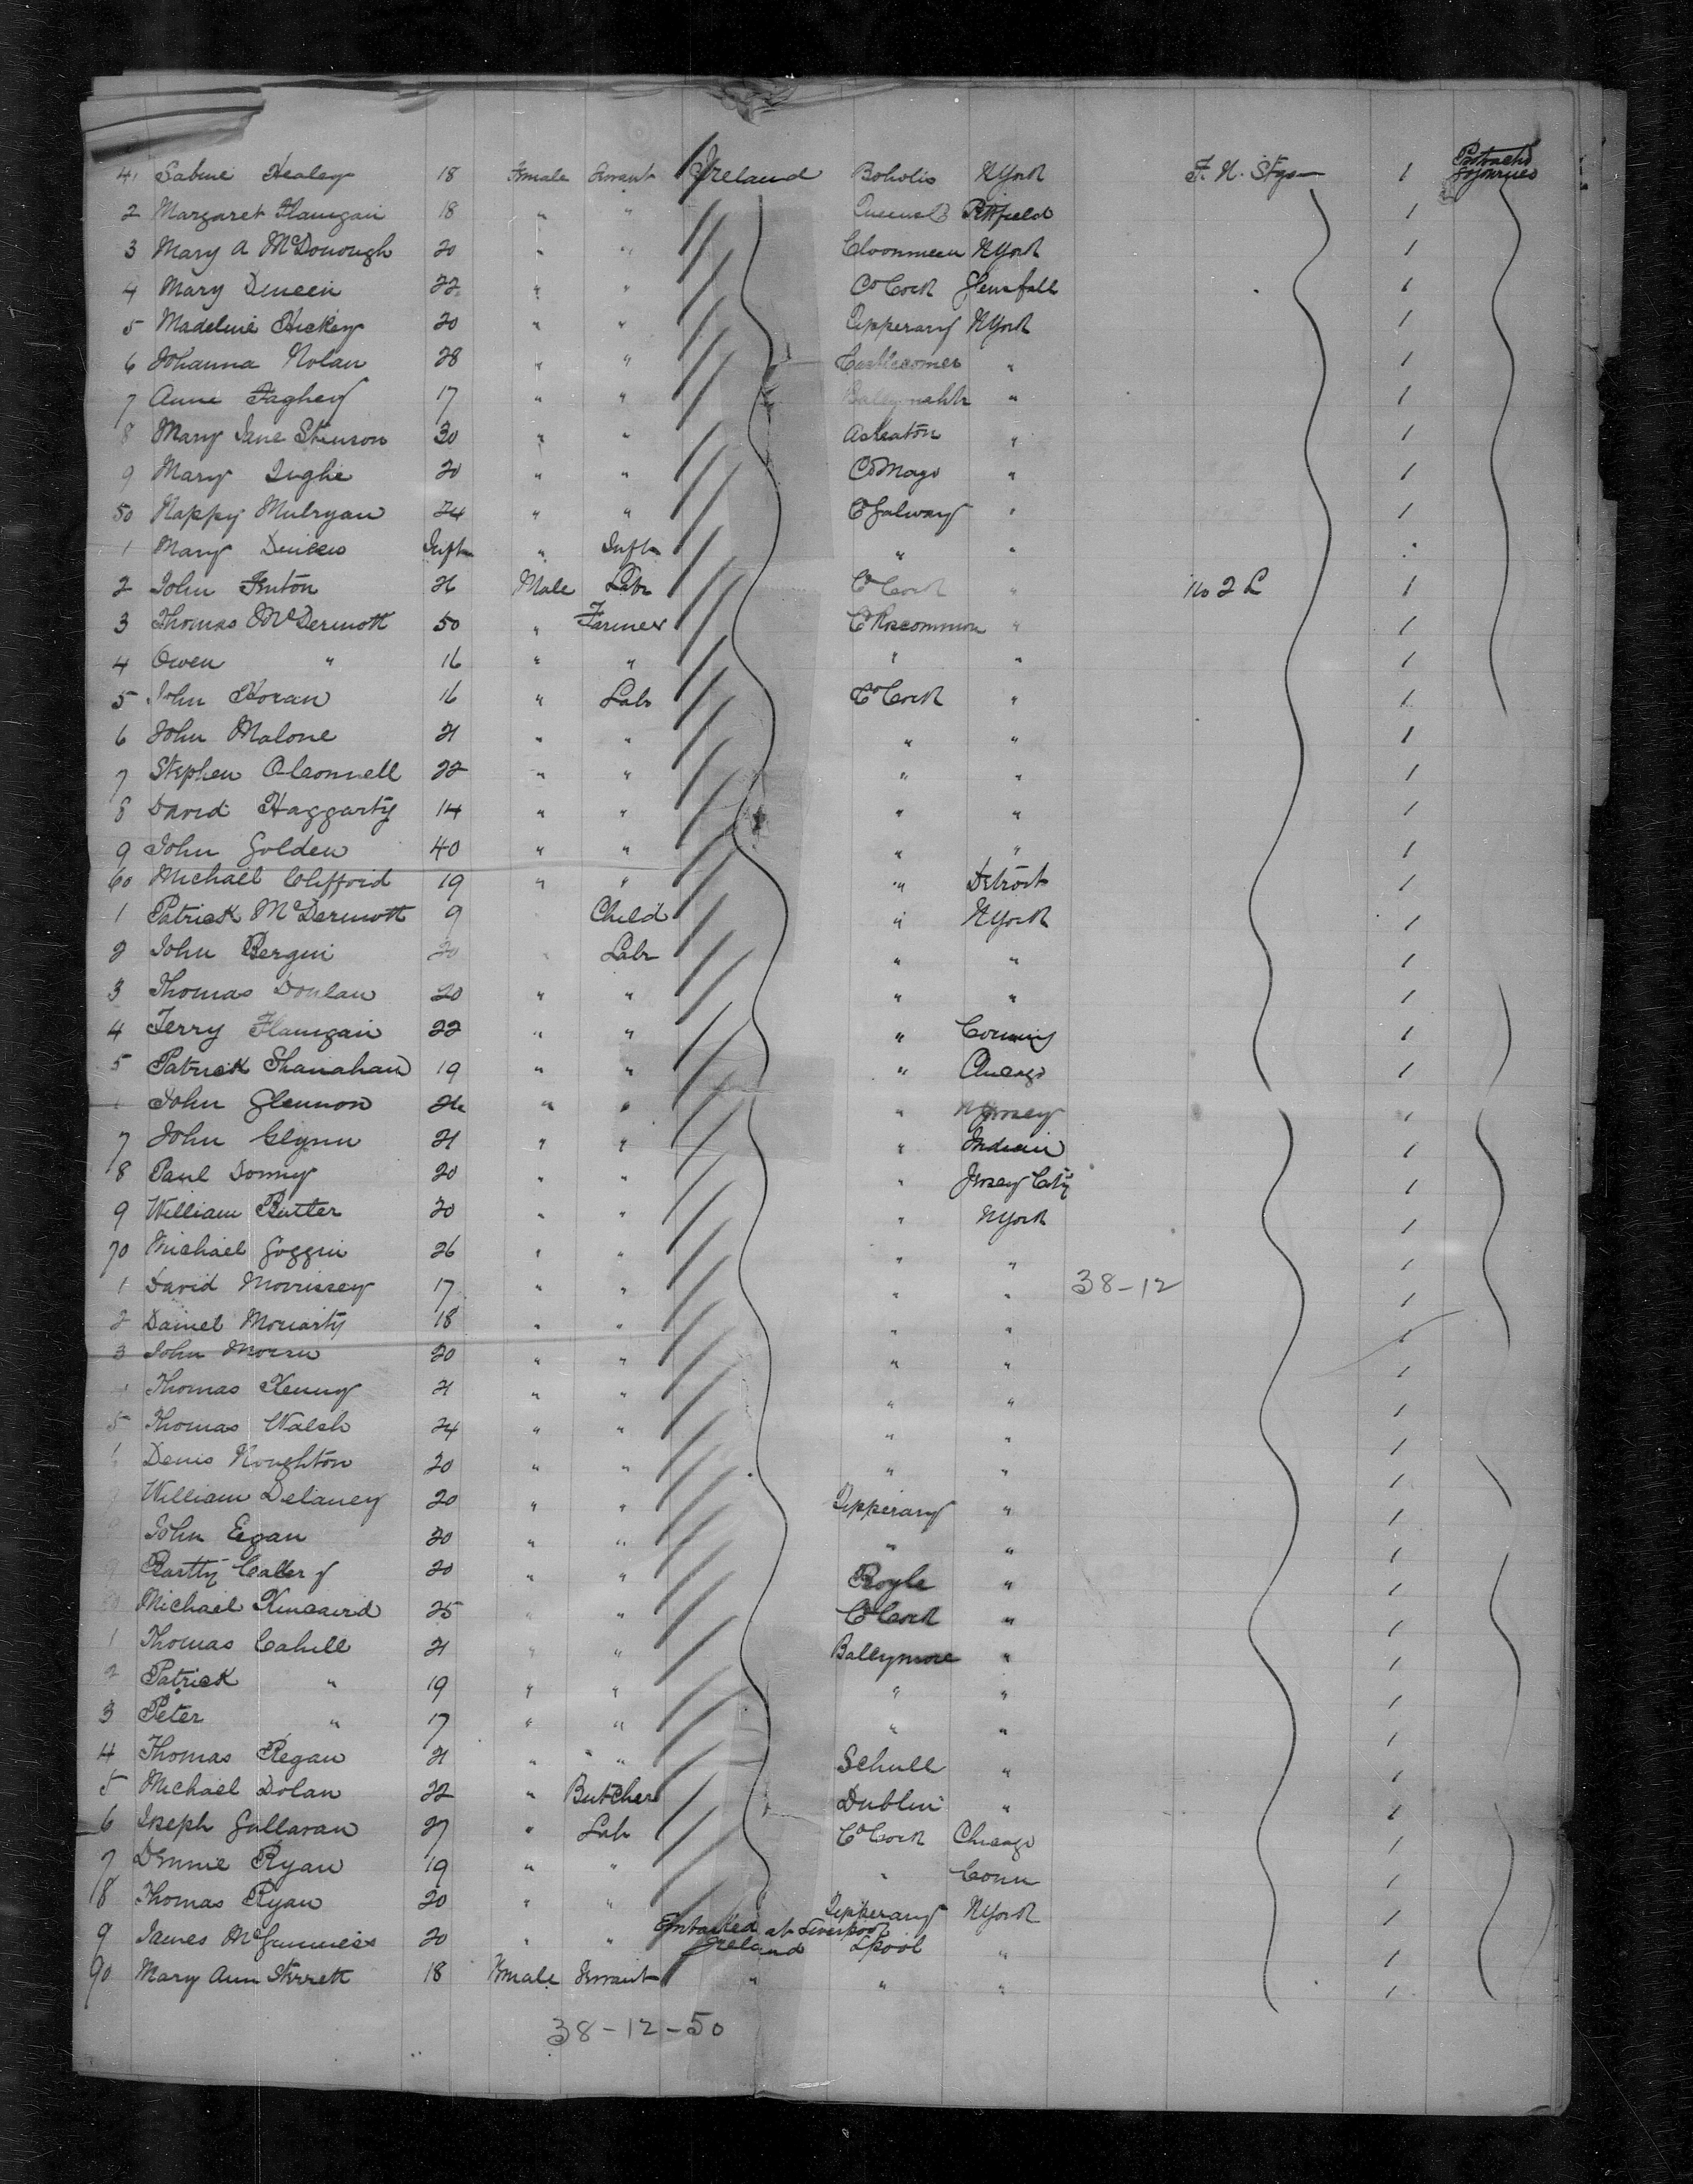 41 Sabine Healey 18 Female Servant Ireland Boholis NYork F. N. Stge 1 Protracted Sojournes
2 Margaret Flanigan 18 " " Queens Co Pittfield 1
3 Mary A McDonough 20 " " Cloonmeen NYork 1
4 Mary Dineen 22 " " Co Cork Glensfall 1
5 Madeline Hickey 20 " " Tipperary NYork 1
6 Johanna Nolan 28 " " Castlecomer " 1
7 Anne Faghey 17 " " " 1
8 Mary Jane Stenson 30 " " Askeaton " 1
9 Mary Tughe 20 " " Co Mayo " 1
50 Nappy Mulryan 24 " " Co Galway " 1
1 Mary Inft " Inft " "
2 John Fenton 26 Male Labr Co Cork " No 2 L 1
3 Thomas McDermott 50 " Farmer Co Roscommon " 1
4 Owen " 16 " " " " 1
5 John Horan 16 " Labr Co Cork " 1
6 John Malone 21 " " " " 1
7 Stephen OConnell 22 " " " " 1
8 David Haggarty 14 " " " " 1
9 John Golden 40 " " " " 1
60 Michael Clifford 19 " " " Detroit 1
1 Patrick McDermott 9 Child " NYork 1
2 John Bergin 20 " Labr " " 1
3 Thomas Donlan 20 " " " " 1
4 Jerry Flanigan 22 " " " Corning 1
5 Patrick Shanahan 19 " " " Chicago 1
John Glennon 26 " " " NJersey 1
7 John Glynn 21 " " " Indian 1
8 Paul Donny 20 " " " Jersey City 1
9 William Butler 20 " " " NYork 1
70 Michael Goggin 26 " " " " 1
1 David Morrissey 17 " " " " 38-12 1
2 Daniel Moriarty 18 " " " " 1
3 John Moran 20 " " " " 1
4 Thomas Kenny 21 " " " " 1
5 Thomas Walsh 24 " " " " 1
6 Denis Noughton 20 " " " " 1
William Delaney 20 " " Tipperary " 1
John Egan 20 " " " " 1
9 Bartty Callery 20 " " Boyle " 1
80 Michael Kincaird 25 " " Co Cork " 1
1 Thomas Cahill 21 " " Ballymore " 1
2 Patrick " 19 " " " " 1
3 Peter " 17 " " " " 1
4 Thomas Regan 21 " " Schull " 1
5 Michael Dolan 22 " Butcher Dublin " 1
6 Joseph Gallavan 27 " Labr Co Cork Chicago 1
7 Dennie Ryan 19 " " " Conn 1
18 Thomas Ryan 20 " " Tipperary NYork 1
Embarked at Liverpool
9 James McGuinness 20 " " Ireland Lpool " 1
90 Mary Ann Sterrett 18 Female Servant " " " 1
38-12-50